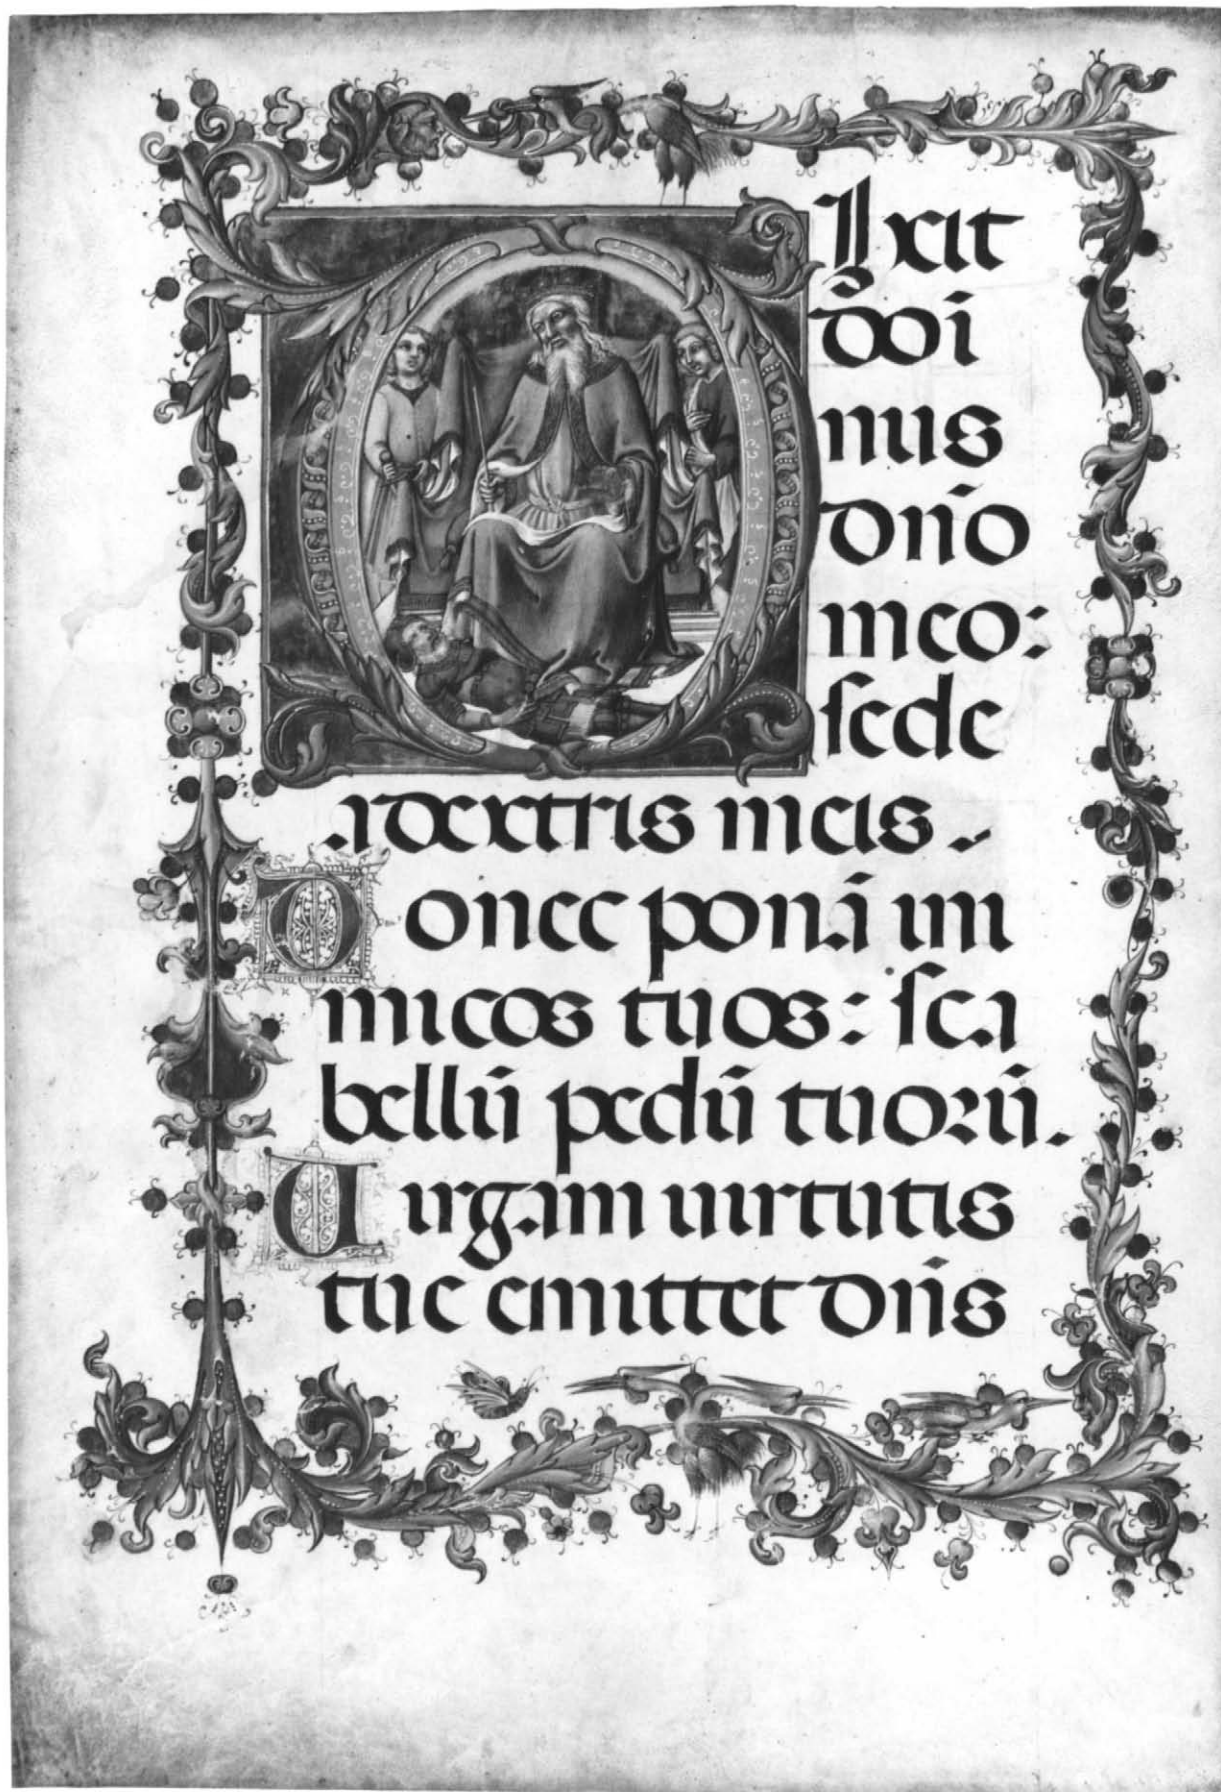 DIxit
doī
nus
dn̄o
meo:
sede
adextris meis.
Donec ponā ini
micos tuos: sca
bellū pedū tuorū.
Uirgam uirtutis
tue emittet dn̄s